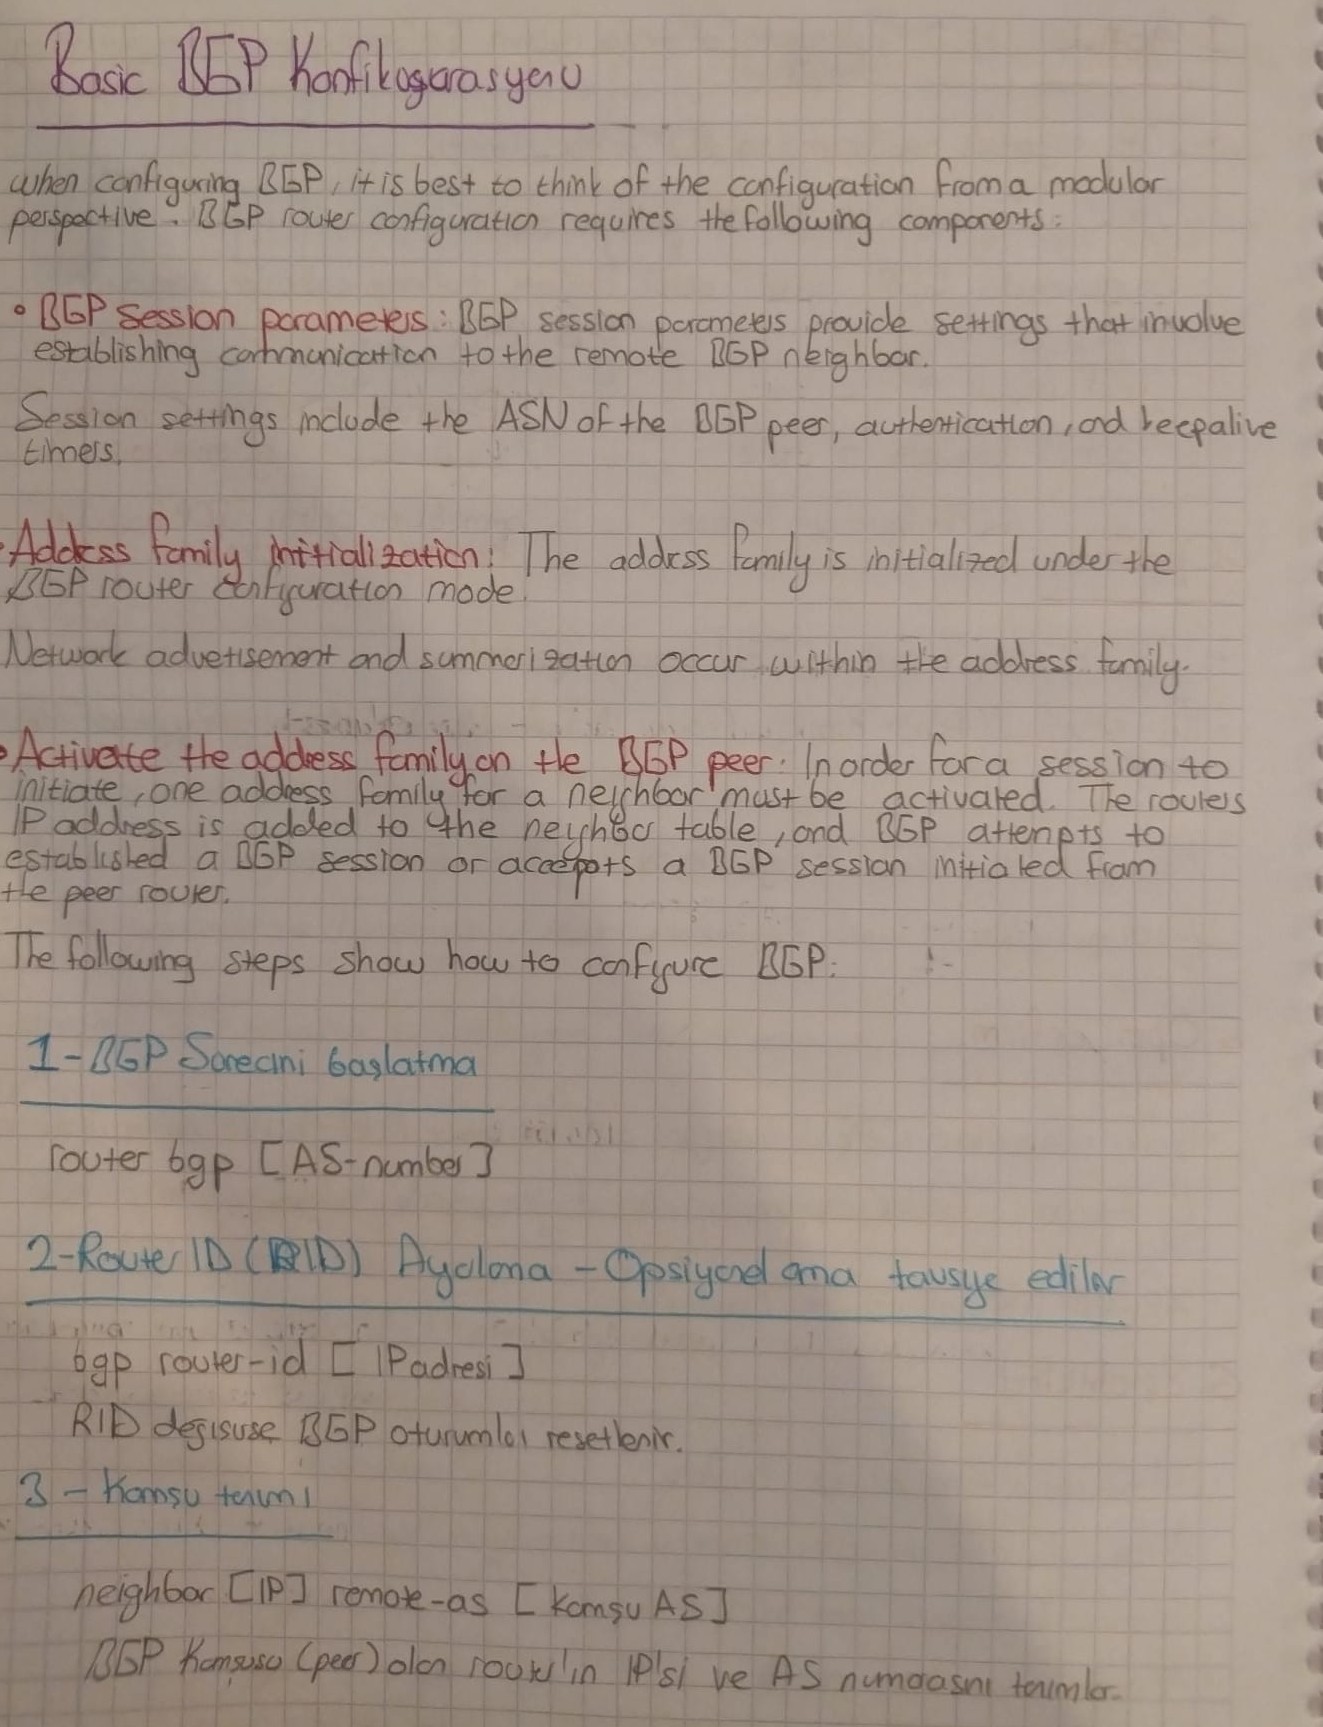 Basic BGP Konfikogarasyonu
when configuring BGP, it is best to think of the configuration from a modular
perspective. BGP router configuration requires the following components:
• BGP session parameters: BGP session parameters provide settings that involve
establishing communication to the remote BGP neighbor.
Session settings include the ASN of the BGP peer, authentication, and keepalive
timers.
• Address family initialization: The address family is initialized under the
BGP router configuration mode.
Network advetisement and summerization occur within the address family.
• Activate the address family on the BGP peer: In order for a session to
initiate, one address family for a neighbor must be activated. The routers
IP address is added to the neighbor table, and BGP attempts to
established a BGP session or accepts a BGP session initiated from
the peer router.
The following steps show how to configure BGP:
1-BGP Sürecini başlatma
router bgp [AS-number]
2-Router ID (RID) Ayarlama - Opsiyonel ama tavsiye edilir
bgp router-id [IP adresi]
RID değişirse BGP oturumları resetlenir.
3 - Komşu tanımı
neighbor [IP] remote-as [komşu AS]
BGP Komşusu (peer) olan router'ın IP'si ve AS numarasını tanımlar.